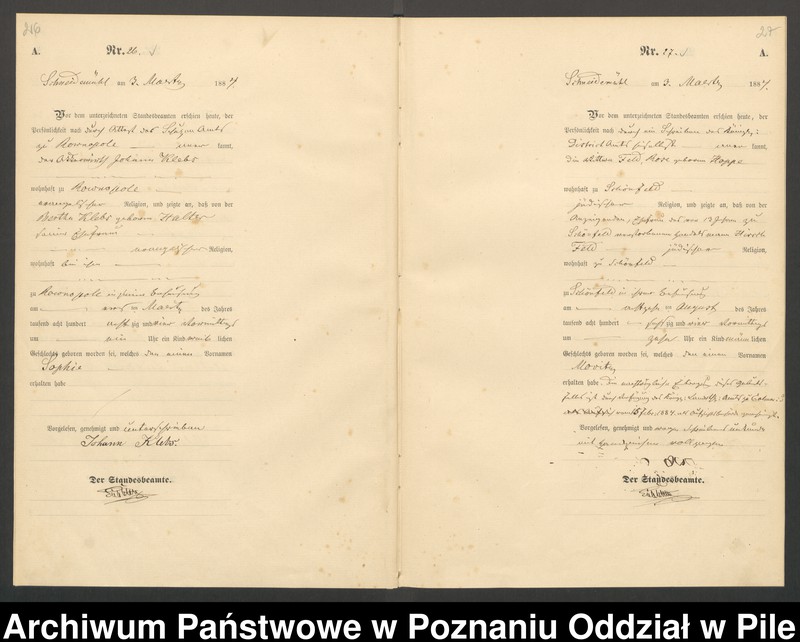 26
A.
Nr. 26.
Schneidemühl am 3. Maerz 1884.
Vor dem unterzeichneten Standesbeamten erschien heute, der
Persönlichkeit nach durch Attest des Schulzen Amts
zu Kownopole kannt,
der Johann Klebs
wohnhaft zu Kownopole
evangelischer Religion, und zeigte an, daß von der
Bertha Klebs geborene Halter
seiner Ehefrau
evangelischer Religion,
wohnhaft bei ihm
zu Kownopole in seiner Behausung
am ersten Maerz des Jahres
tausend acht hundert achtzig und vier Vormittags
um ein Uhr ein Kind weiblichen
Geschlechts geboren worden sei, welches den einen Vornamen
Sophie
erhalten habe
Vorgelesen, genehmigt und unterschrieben
Johann Klebs.
Der Standesbeamte.
27
Nr. 27.
A.
Schneidemühl am 3. Maerz 1884.
Vor dem unterzeichneten Standesbeamten erschien heute, der
Persönlichkeit nach durch ein Schreiben des Königl:
District Amts hieselbst kannt,
die Wittwe Feld, Rose geborene Hoppe
wohnhaft zu Schönfeld
jüdischer Religion, und zeigte an, daß von der
Anzeigenden, Ehefrau des vor Jahren zu
Schönfeld verstorbenen Handelsmann Hirsch
Feld jüdischer Religion,
wohnhaft zu Schönfeld
zu Schönfeld in ihrer Behausung
am August des Jahres
tausend acht hundert und vier Vormittags
um zehn Uhr ein Kind männlichen
Geschlechts geboren worden sei, welches den einen Vornamen
Moritz
erhalten habe. Die nachträgliche Eintragung dieses Geburts-
falles ist durch Verfügung des Königl: Landraths: Amts zu
vom 15 Febr. 1884 als Aufsichtsbehörde genehmigt.
Vorgelesen, genehmigt und wegen Schreibens unkunde
mit Handzeichen vollzogen
Der Standesbeamte.
Archiwum Państwowe w Poznaniu Oddział w Pile